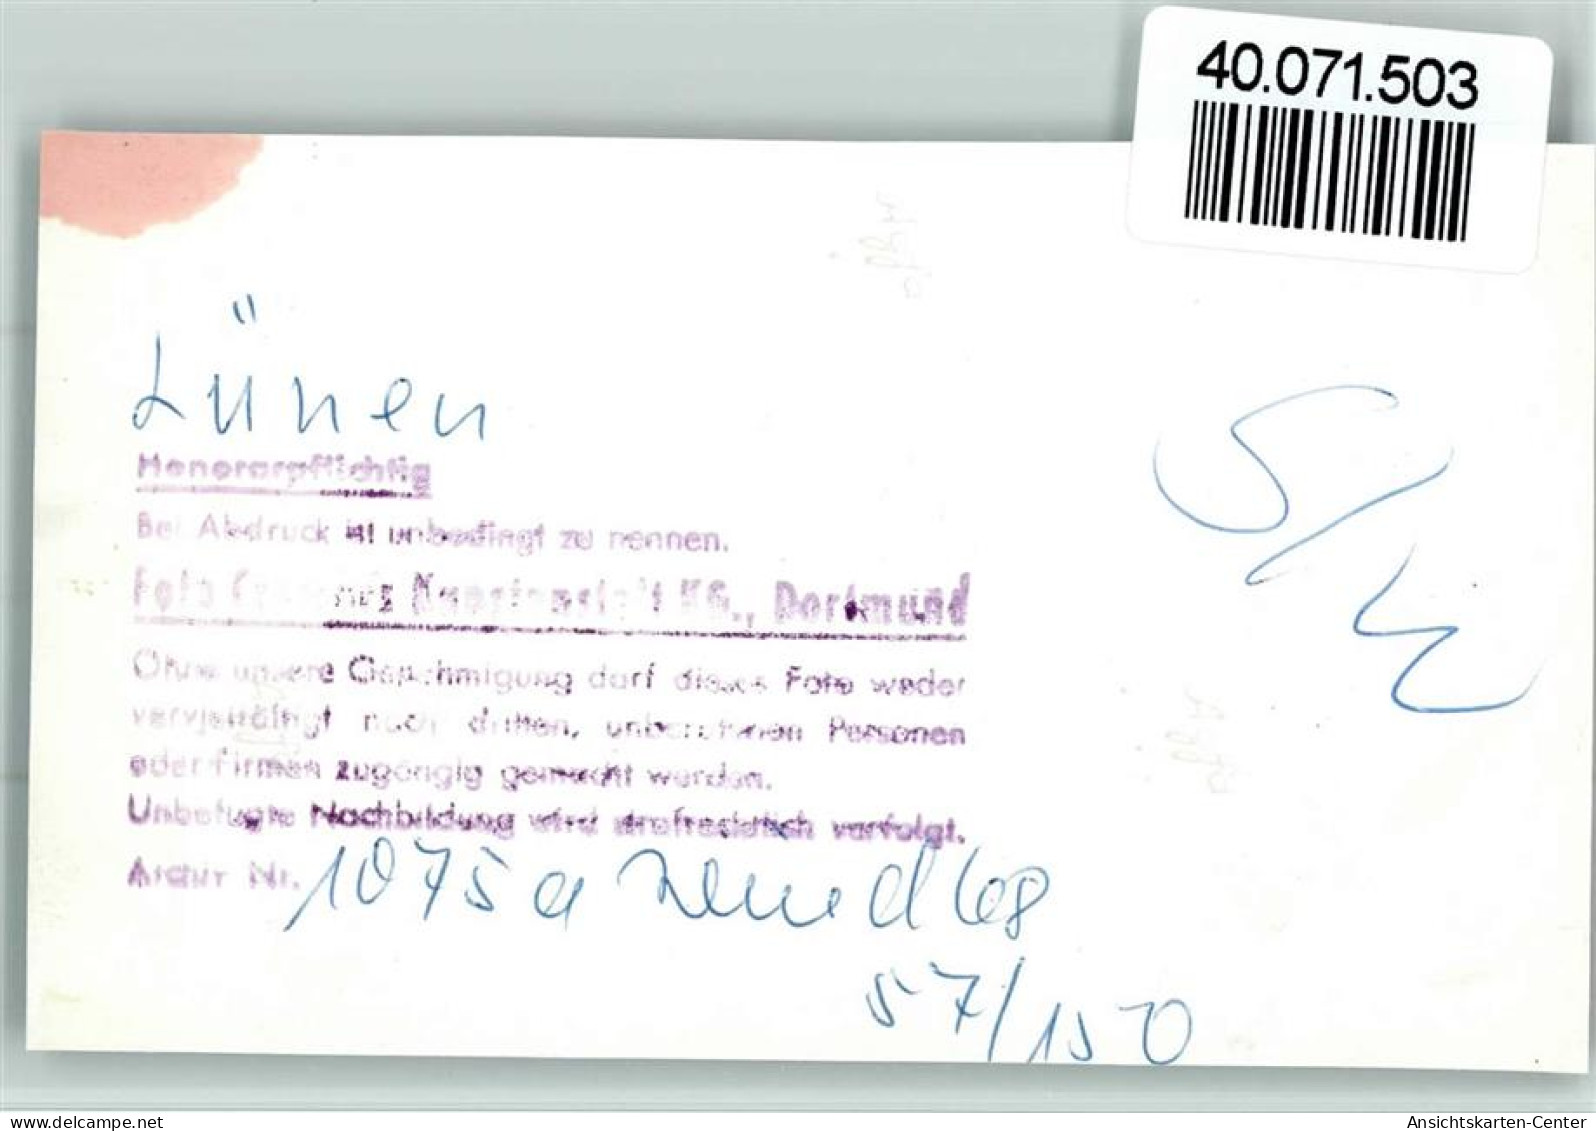 40.071.503
Lünen
Honorarpflichtig
Bei Abdruck ist unbedingt zu nennen.
Foto Cramers Kunstanstalt KG., Dortmund
Ohne unsere Genehmigung darf dieses Foto weder
vervielfältigt noch dritten, unberufenen Personen
oder Firmen zugängig gemacht werden.
Unbefugte Nachbildung wird strafrechtlich verfolgt.
Archiv Nr. 1075a 68
57/150
S/W
www.delcampe.net
Ansichtskarten-Center